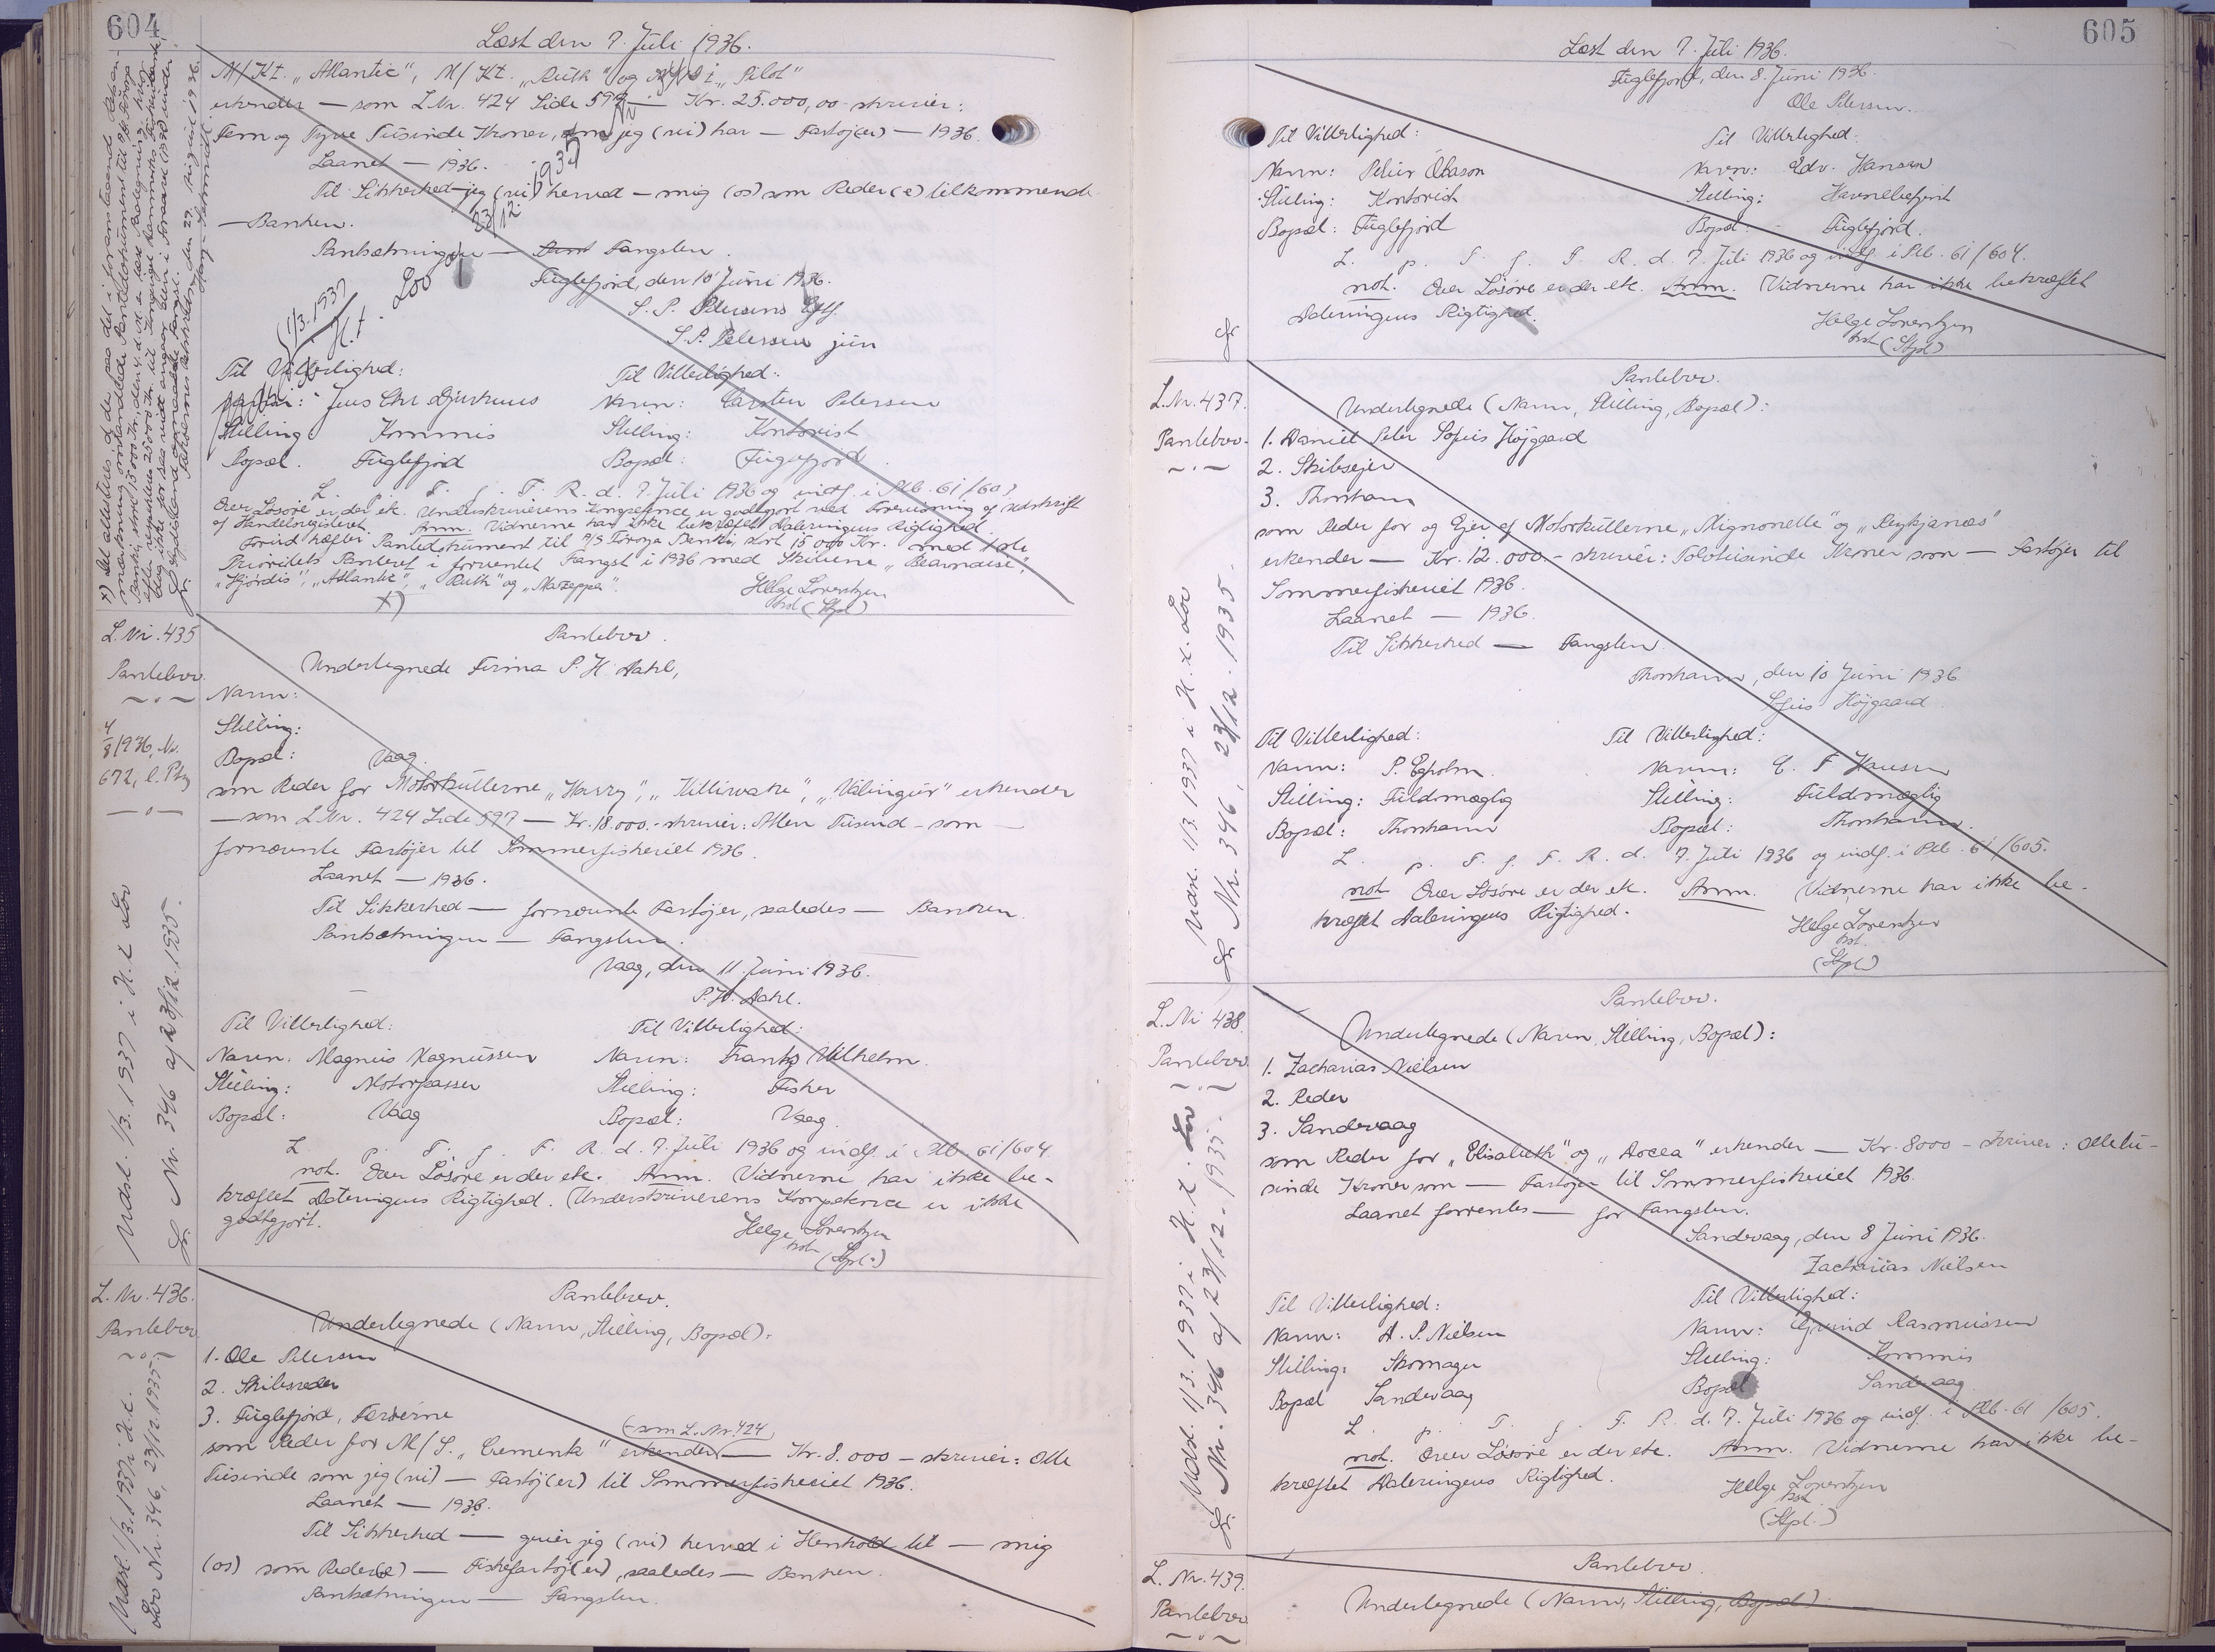 604
Læst den 7. Juli 1936.
M/Kt. „Atlantic", M/Kt. „Ruth" og „Pilot"
erkender — som L.Nr. 424 Side 597 — Kr. 25.000,00 skriver:
Fem og Tyve Tusinde Kroner, som jeg (vi) har — Fartøj(er) — 1936.
Laanet — 1936.
Til Sikkerhed — jeg (vi) herved — mig (os) som Reder(e) tilkommende
— Banken.
Pantsætningen — Fangsten.
Fuglefjord, den 10 Juni 1936.
S. P. Petersens Eftf.
S. P. Petersen jun
Til Vitterlighed: Til Vitterlighed:
Navn: Jens Chr Djurhuus Navn: Carsten Petersen
Stilling Kommis Stilling: Kontorist
Bopæl. Fuglefjord Bopæl: Fuglefjord.
L. p. T. f. F. R. d. 7. Juli 1936 og indf. i Ptb. 61/603
Over Løsøre er der etc. Underskriverens Kompetence er godtgjort ved Forevisning af Udskrift
af Handelsregisteret. Anm. Vidnerne har ikke bekræftet Dateringens Rigtighed.
Forud hæfter Pantedokument til A/S Føroya Banki, stort 15.000 Kr. med 1ste
Prioritets Panteret i forventet Fangst i 1936 med Skibene „Bearnaise",
„Hjördis", „Atlantic", „Ruth" og „Mazeppa".
x)
Helge Lorentzen
kst. (Stpl.)
x) Det attesteres, at de paa det i foranstaaende
den 29. August 1936.
1/3. 1937
H.t. Lov
23/12 1935
L. Nr. 435
Pantebrev
4/8 1936, Nr.
672, l. Ptg
Udsl. 1/3. 1937 i H. t. Lov
Nr. 346 af 23/12. 1935.
Pantebrev.
Undertegnede Firma P. H. Dahl,
Navn:
Stilling:
Bopæl: Vaag.
som Reder for Motorkutterne „Harry", „Kittiwake", „Vālingur" erkender
— som L.Nr. 424 Side 597 — Kr. 18.000.- skriver: Atten Tusind - som —
fornævnte Fartøjer til Sommerfiskeriet 1936.
Laanet — 1936.
Til Sikkerhed — fornævnte Fartøjer, saaledes — Banken.
Pantsætningen — Fangsten.
Vaag, den 11. Juni 1936.
P. H. Dahl.
Til Vitterlighed: Til Vitterlighed:
Navn: Magnus Magnussen Navn: Frants Vilhelm.
Stilling: Motorpasser Stilling: Fisker
Bopæl: Vaag Bopæl: Vaag.
L. p. T. f. F. R. d. 7. Juli 1936 og indf. i Ptb. 61/604
not. Over Løsøre er der etc. Anm. Vidnerne har ikke be-
kræftet Dateringens Rigtighed. Underskriverens Kompetence er ikke
godtgjort.
Helge Lorentzen
kst. (Stpl.)
L. Nr. 436.
Pantebrev
Udsl. 1/3. 1937 i H.t.
Lov Nr. 346, 23/12 1935.
Pantebrev.
Undertegnede (Navn, Stilling, Bopæl):
1. Ole Petersen
2. Skibsreder
3. Fuglefjord, Færøerne
(som L. Nr. 424)
som Reder for M/S. „Cementa" erkender — Kr. 8.000 - skriver: Otte
Tusinde som jeg (vi) — Fartøj(er) til Sommerfiskeriet 1936.
Laanet — 1936.
Til Sikkerhed — giver jeg (vi) herved i Henhold til — mig
(os) som Reder(e) — Fiskefartøj(er), saaledes — Banken.
Pantsætningen — Fangsten.
605
Læst den 7. Juli 1936.
Fuglefjord, den 8. Juni 1936.
Ole Petersen.
Til Vitterlighed: Til Vitterlighed:
Navn: Petur Olason Navn: Edv. Hansen
Stilling: Kontorist Stilling: Havnebetjent
Bopæl: Fuglefjord Bopæl: Fuglefjord.
L. p. T. f. F. R. d. 7. Juli 1936 og indf. i Ptb. 61/604.
not. Over Løsøre er der etc. Anm. Vidnerne har ikke bekræftet
Dateringens Rigtighed.
Helge Lorentzen
kst. (Stpl)
L. Nr. 437.
Pantebrev.
Udsl. 1/3. 1937 i H. t. Lov
Nr. 346, 23/12. 1935.
Pantebrev.
Undertegnede (Navn, Stilling, Bopæl):
1. Daniel Peter Sofus Højgaard
2. Skibsejer
3. Thorshavn
som Reder for og Ejer af Motorkutterne „Mignonette" og „Reykjanæs"
erkender — Kr. 12.000.- skriver: Tolvtusinde Kroner som — Fartøjer til
Sommerfiskeriet 1936.
Laanet — 1936.
Til Sikkerhed — Fangsten.
Thorshavn, den 10 Juni 1936.
Sofus Højgaard
Til Vitterlighed: Til Vitterlighed:
Navn: P. Egholm. Navn: C. F Hansen
Stilling: Fuldmægtig Stilling: Fuldmægtig
Bopæl: Thorshavn Bopæl: Thorshavn.
L. p. T. f. F. R. d. 7. Juli 1936 og indf. i Ptb. 61/605.
not Over Løsøre er der etc. Anm. Vidnerne har ikke be-
kræftet Dateringens Rigtighed.
Helge Lorentzen
kst.
(Stpl)
L. Nr 438.
Pantebrev.
Udsl. 1/3. 1937 i H. t. Lov
Nr. 346 af 23/12 - 1935.
Pantebrev.
Undertegnede (Navn, Stilling, Bopæl):
1. Zacharias Nielsen
2. Reder
3. Sandevaag
som Reder for „Elisabeth" og „Aocea" erkender — Kr. 8000 - skriver: Ottetu-
sinde Kroner som — Fartøjer til Sommerfiskeriet 1936.
Laanet forrentes — for Fangsten.
Sandevaag, den 8 Juni 1936.
Zacharias Nielsen
Til Vitterlighed: Til Vitterlighed:
Navn: A. P. Nielsen Navn: Rasmussen
Stilling: Skomager Stilling: Kommis
Bopæl Sandevaag Bopæl Sandevaag
L. p. T. f. F. R. d. 7. Juli 1936 og indf. i Ptb. 61/605.
not. Over Løsøre er der etc. Anm. Vidnerne har ikke be-
kræftet Dateringens Rigtighed.
Helge Lorentzen
kst
(Stpl.)
L. Nr. 439.
Pantebrev
Pantebrev.
Undertegnede (Navn, Stilling, Bopæl)